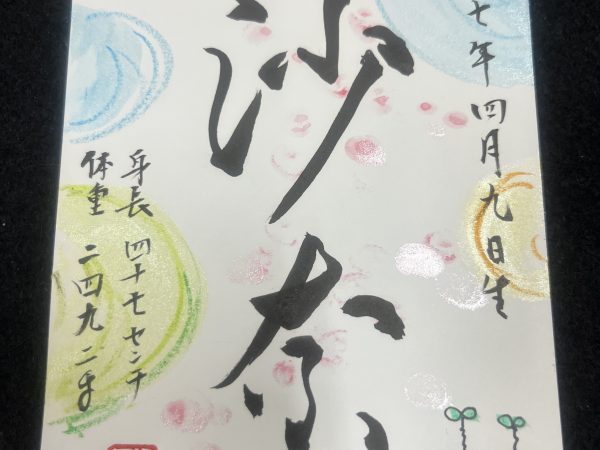 七年四月九日生
沙奈
身長 四十七センチ
体重 二四九二g